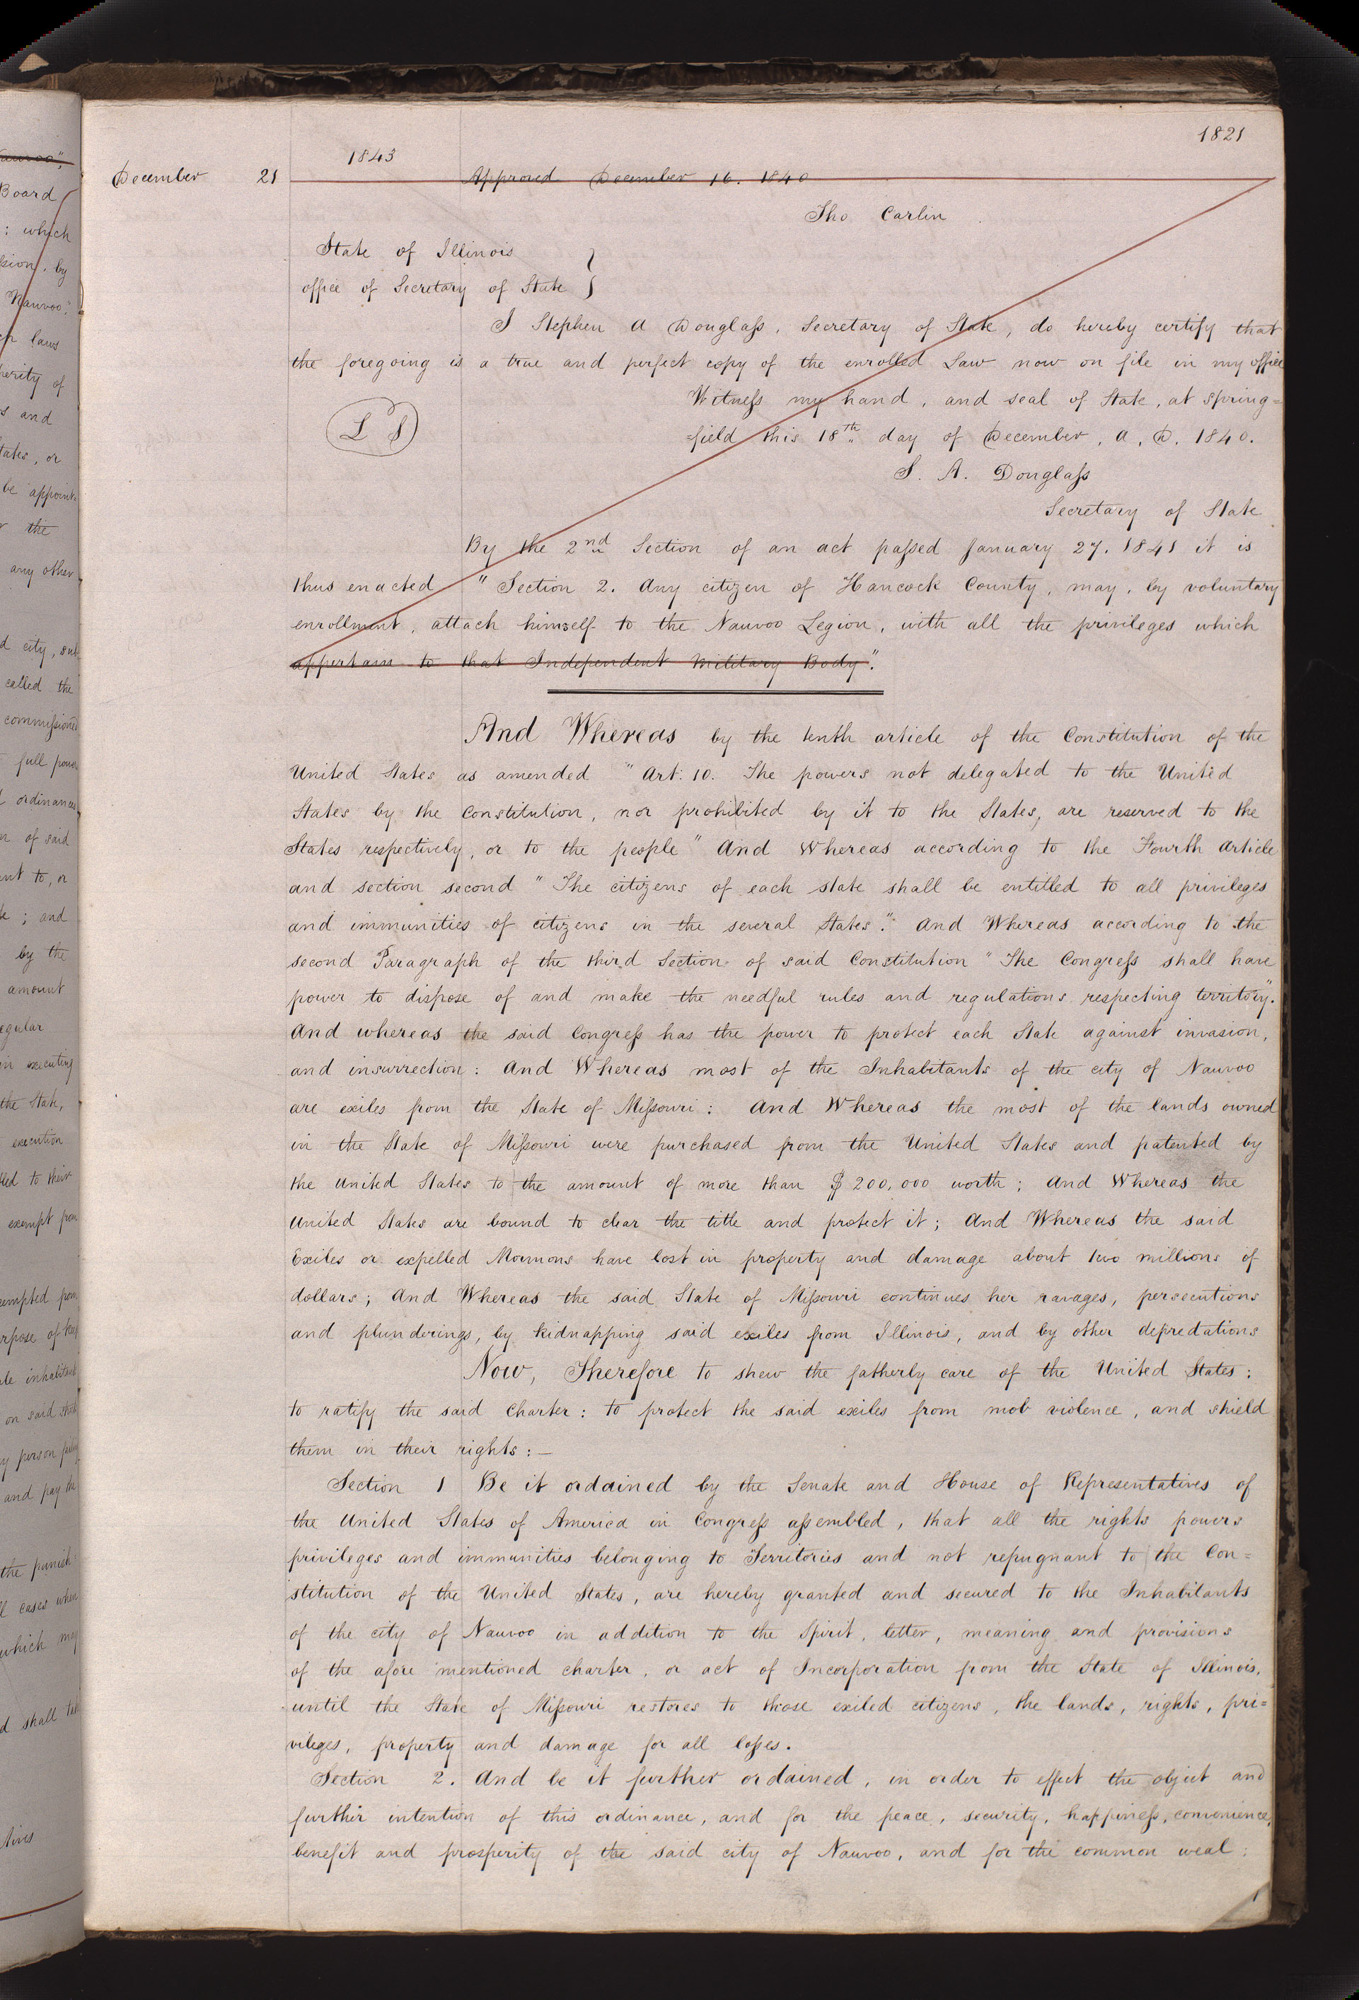 1821
1843
December 21 Approved December 16. 1840
Tho Carlin
State of Illinois
office of Secretary of State }
I Stephen A Douglass, Secretary of State, do hereby certify that
the foregoing is a true and perfect copy of the enrolled Law now on file in my office
Witness my hand, and seal of State, at Spring=
L S
=field this 18th day of December, A. D. 1840.
S. A. Douglass
Secretary of State
By the 2nd Section of an act passed January 27. 1841 it is
thus enacted "Section 2. Any citizen of Hancock County, may, by voluntary
enrollment, attach himself to the Nauvoo Legion, with all the privileges which
appertain to that Independent Military Body".
And Whereas by the tenth article of the Constitution of the
United States as amended "Art. 10. The powers not delegated to the United
States by the Constitution, nor prohibited by it to the States, are reserved to the
States respectively, or to the people" And Whereas according to the Fourth article
and section second "The citizens of each state shall be entitled to all privileges
and immunities of citizens in the several States". And Whereas according to the
second Paragraph of the third Section of said Constitution "The Congress shall have
power to dispose of and make the needful rules and regulations respecting territory".
And whereas the said Congress has the power to protect each State against invasion,
and insurrection: And Whereas most of the Inhabitants of the city of Nauvoo
are exiles from the State of Missouri: And Whereas the most of the lands owned
in the State of Missouri were purchased from the United States and patented by
the United States to the amount of more than $200,000 worth; And Whereas the
United States are bound to clear the title and protect it; And Whereas the said
Exiles or expelled Mormons have lost in property and damage about two millions of
dollars; And Whereas the said State of Missouri continues her ravages, persecutions
and plunderings, by kidnapping said exiles from Illinois, and by other depredations
Now, Therefore to shew the fatherly care of the United States;
to ratify the said charter: to protect the said exiles from mob violence, and shield
them in their rights:—
Section 1 Be it ordained by the Senate and House of Representatives of
the United States of America in Congress assembled, that all the rights powers
privileges and immunities belonging to Territories and not repugnant to the Con=
stitution of the United States, are hereby granted and secured to the Inhabitants
of the city of Nauvoo in addition to the Spirit, letter, meaning and provisions
of the afore mentioned charter, or act of Incorporation from the State of Illinois,
until the State of Missouri restores to those exiled citizens, the lands, rights, pri=
vileges, property and damage for all losses.
Section 2. And be it further ordained, in order to effect the object and
further intention of this ordinance, and for the peace, security, happiness, convenience,
benefit and prosperity of the said city of Nauvoo, and for the common weal: